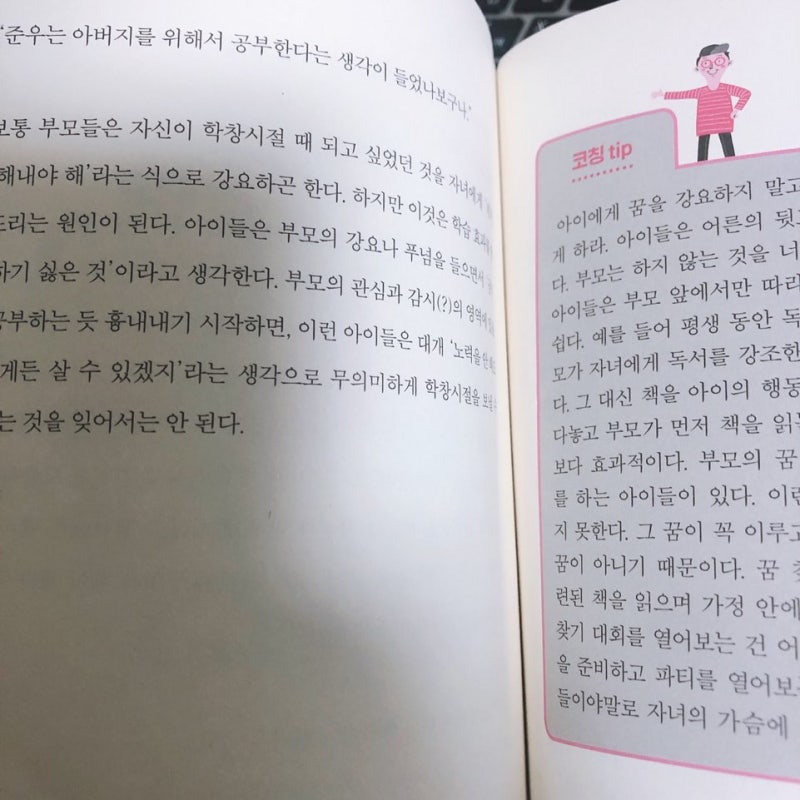 '준우는 아버지를 위해서 공부한다는 생각이 들었나보구나.'
보통 부모들은 자신이 학창시절 때 되고 싶었던 것을 자녀에게
해내야 해'라는 식으로 강요하곤 한다. 하지만 이것은 학습
드리는 원인이 된다. 아이들은 부모의 강요나 푸념을 들으면서
하기 싫은 것'이라고 생각한다. 부모의 관심과 감시(?)의 영역에
공부하는 듯 흉내내기 시작하면, 이런 아이들은 대개 '노력을
게든 살 수 있겠지'라는 생각으로 무의미하게 학창시절을
는 것을 잊어서는 안 된다.
코칭 tip
아이에게 꿈을 강요하지 말고
게 하라. 아이들은 어른의 뒷
다. 부모는 하지 않는 것을 너
아이들은 부모 앞에서만 따라
쉽다. 예를 들어 평생 동안 독
모가 자녀에게 독서를 강조한
다. 그 대신 책을 아이의 행동
다놓고 부모가 먼저 책을 읽
보다 효과적이다. 부모의 꿈
를 하는 아이들이 있다. 이런
지 못한다. 그 꿈이 꼭 이루고
꿈이 아니기 때문이다. 꿈
련된 책을 읽으며 가정 안에
찾기 대회를 열어보는 건 어
을 준비하고 파티를 열어보
들이야말로 자녀의 가슴에